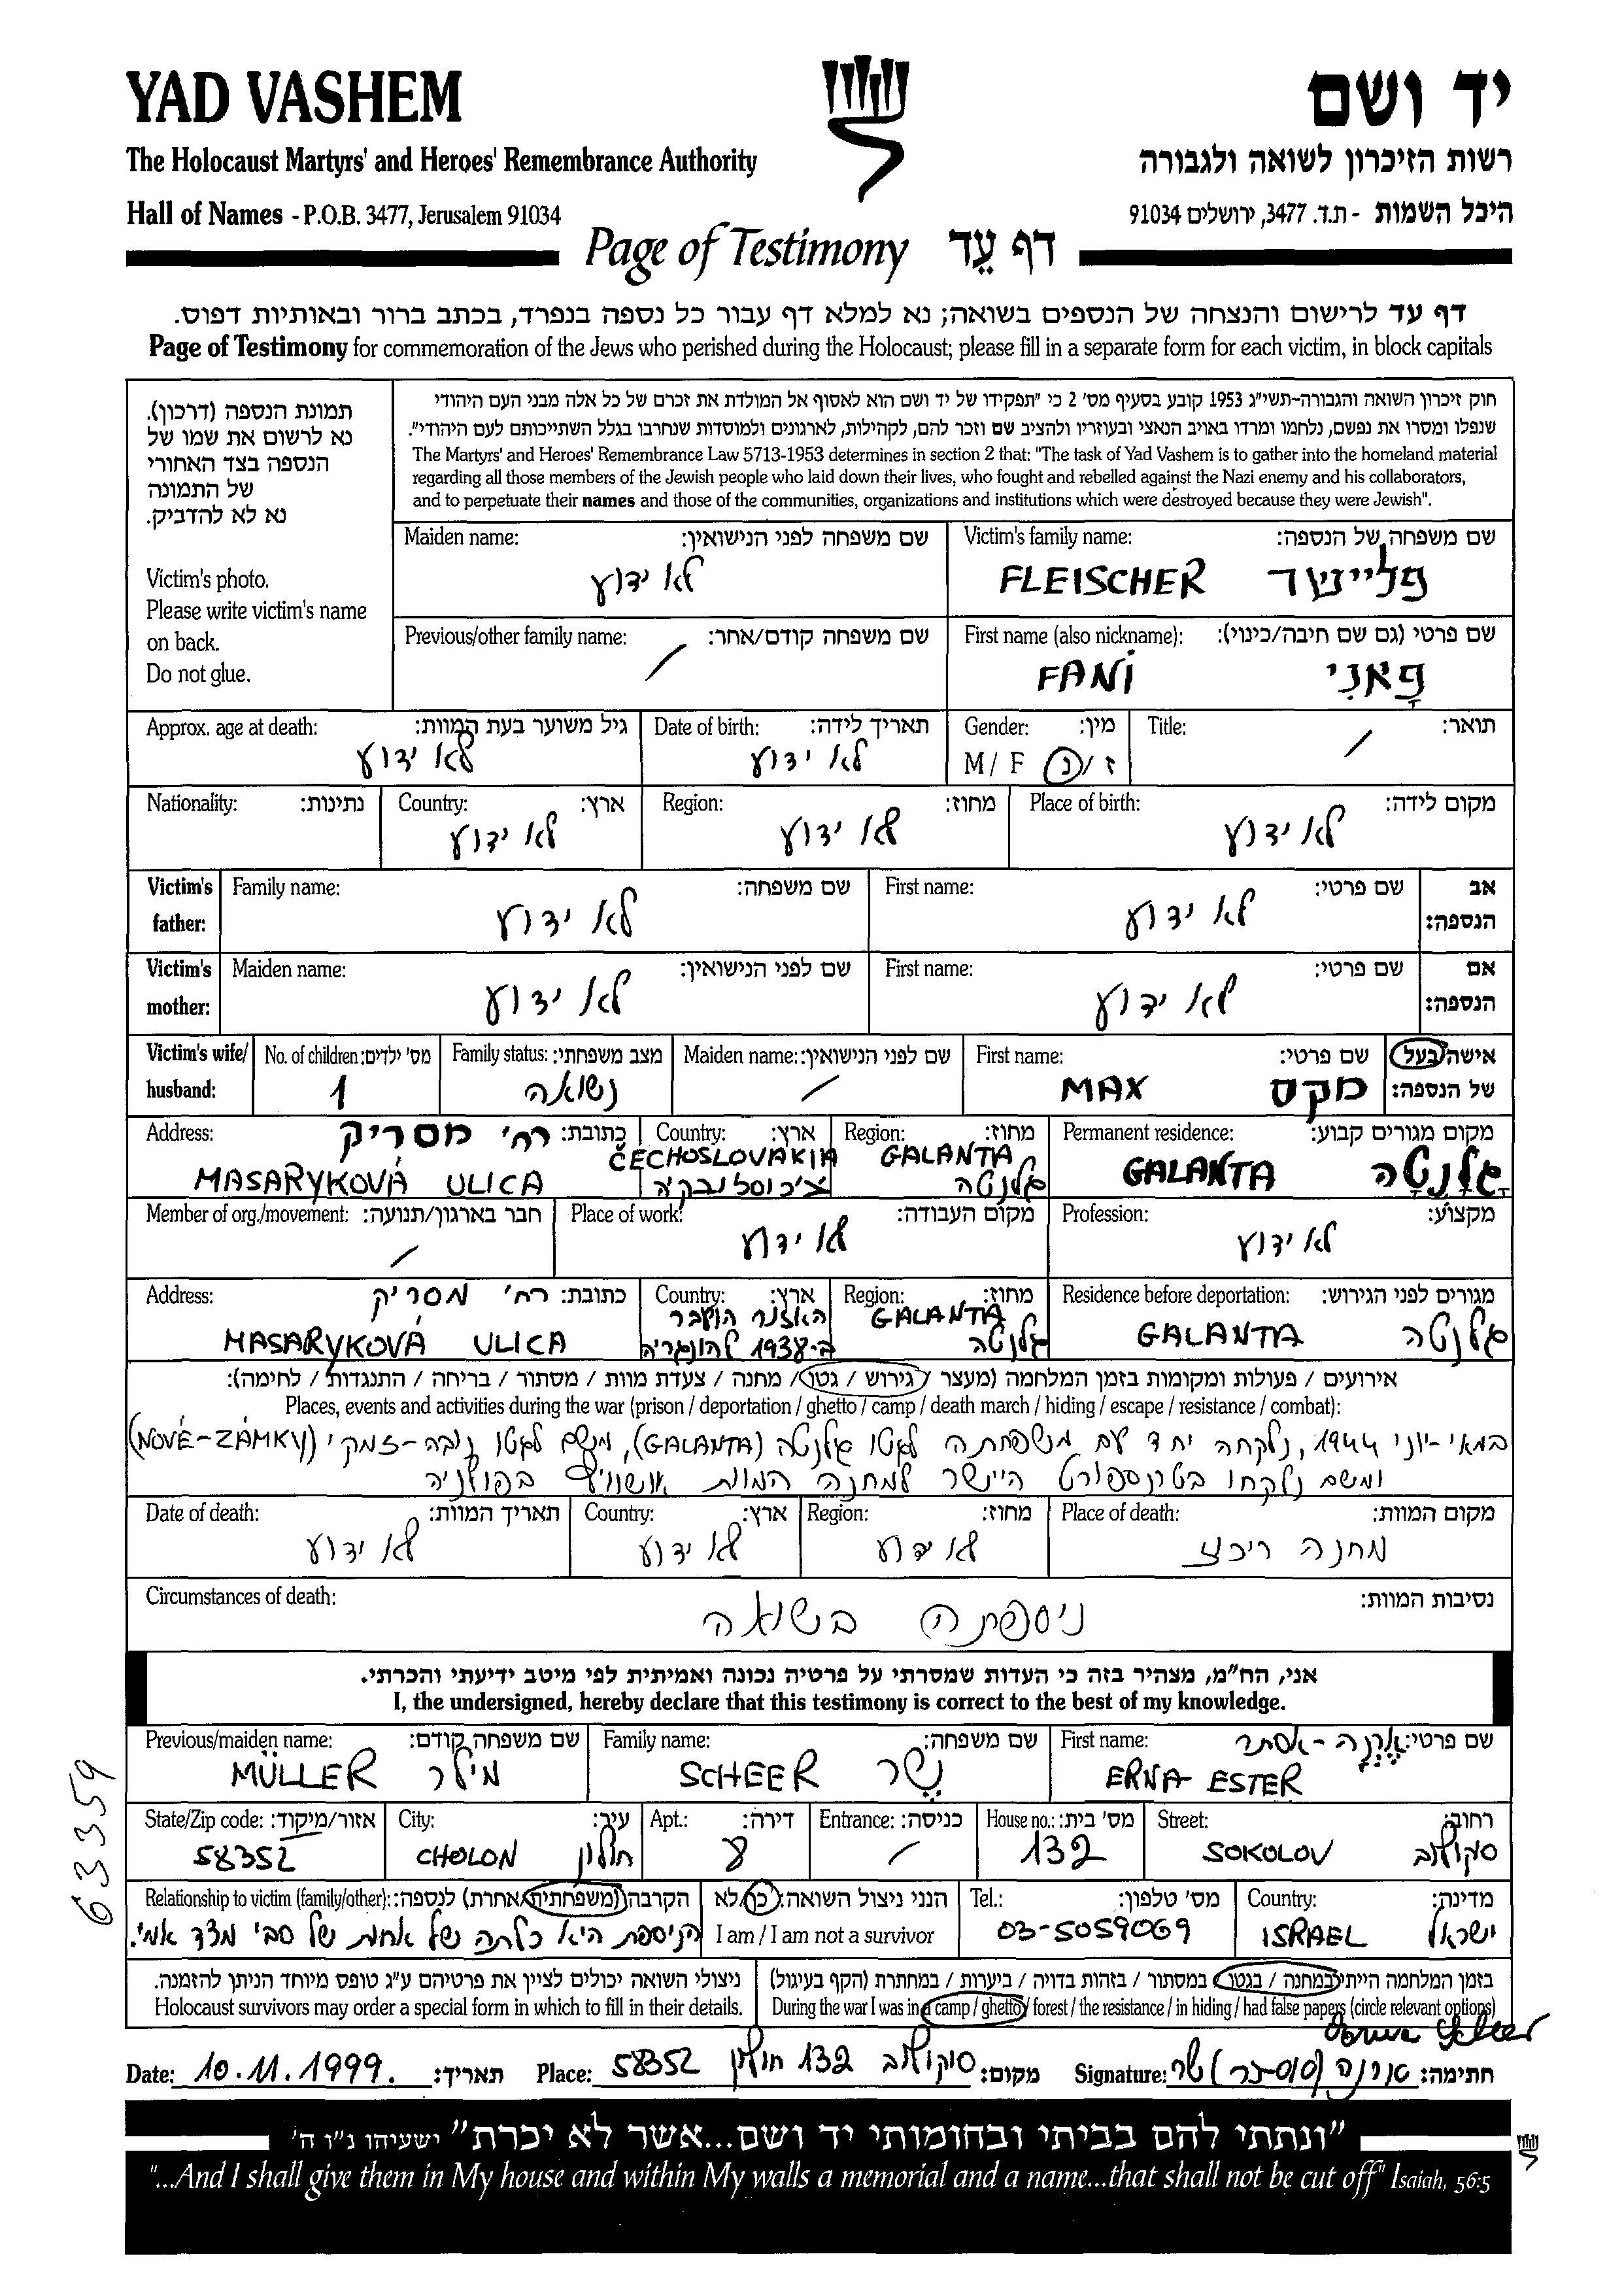 YAD VASHEM
יד ושם
The Holocaust Martyrs' and Heroes' Remembrance Authority
רשות הזיכרון לשואה ולגבורה
Hall of Names - P.O.B. 3477, Jerusalem 91034
היכל השמות - ת.ד. 3477, ירושלים 91034
Page of Testimony דף עֵד
דף עד לרישום והנצחה של הנספים בשואה; נא למלא דף עבור כל נספה בנפרד, בכתב ברור ובאותיות דפוס.
Page of Testimony for commemoration of the Jews who perished during the Holocaust; please fill in a separate form for each victim, in block capitals
תמונת הנספה (דרכון).
נא לרשום את שמו של
הנספה בצד האחורי
של התמונה
נא לא להדביק.
Victim's photo.
Please write victim's name
on back.
Do not glue.
חוק זיכרון השואה והגבורה-תשי"ג 1953 קובע בסעיף מס' 2 כי "תפקידו של יד ושם הוא לאסוף אל המולדת את זכרם של כל אלה מבני העם היהודי
שנפלו ומסרו את נפשם, נלחמו ומרדו באויב הנאצי ובעוזריו ולהציב שם וזכר להם, לקהילות, לארגונים ולמוסדות שנחרבו בגלל השתייכותם לעם היהודי".
The Martyrs' and Heroes' Remembrance Law 5713-1953 determines in section 2 that: "The task of Yad Vashem is to gather into the homeland material
regarding all those members of the Jewish people who laid down their lives, who fought and rebelled against the Nazi enemy and his collaborators,
and to perpetuate their names and those of the communities, organizations and institutions which were destroyed because they were Jewish".
Maiden name: שם משפחה לפני הנישואין:
לא ידוע
Victim's family name: שם משפחה של הנספה:
FLEISCHER פליישר
Previous/other family name: שם משפחה קודם/אחר:
/
First name (also nickname): שם פרטי (גם שם חיבה/כינוי):
FANI פָאנִי
Approx. age at death: גיל משוער בעת המוות:
לא ידוע
Date of birth: תאריך לידה:
לא ידוע
Gender: מין:
M / F ז / נ
Title: תואר:
/
Nationality: נתינות:
Country: ארץ:
לא ידוע
Region: מחוז:
לא ידוע
Place of birth: מקום לידה:
לא ידוע
Victim's father: אב הנספה:
Family name: שם משפחה:
לא ידוע
First name: שם פרטי:
לא ידוע
Victim's mother: אם הנספה:
Maiden name: שם לפני הנישואין:
לא ידוע
First name: שם פרטי:
לא ידוע
Victim's wife/ husband: אישה/בעל של הנספה:
No. of children: מס' ילדים:
1
Family status: מצב משפחתי:
נשואה
Maiden name: שם לפני הנישואין:
/
First name: שם פרטי:
MAX מקס
Address: כתובת: רח' מסריק
MASARYKOVÁ ULICA
Country: ארץ:
ČECHOSLOVAKIA
צ'כוסלובקיה
Region: מחוז:
GALANTA
גלנטה
Permanent residence: מקום מגורים קבוע:
GALANTA גָלָנטָה
Member of org./movement: חבר בארגון/תנועה:
/
Place of work: מקום העבודה:
לא ידוע
Profession: מקצוע:
לא ידוע
Address: כתובת: רח' מסריק
MASARYKOVÁ ULICA
Country: ארץ:
האזור הועבר
ב-1938 להונגריה
Region: מחוז:
GALANTA
גלנטה
Residence before deportation: מגורים לפני הגירוש:
GALANTA גלנטה
אירועים / פעולות ומקומות בזמן המלחמה (מעצר / גירוש / גטו / מחנה / צעדת מוות / מסתור / בריחה / התנגדות / לחימה):
Places, events and activities during the war (prison / deportation / ghetto / camp / death march / hiding / escape / resistance / combat):
במאי-יוני 1944, נלקחה יחד עם משפחתה לגטו גלנטה (GALANTA), משם לגטו נובה-זמקי (NOVÉ-ZÁMKY)
ומשם נלקחו בטרנספורט היישר למחנה המוות אושוויץ בפולניה
Date of death: תאריך המוות:
לא ידוע
Country: ארץ:
לא ידוע
Region: מחוז:
לא ידוע
Place of death: מקום המוות:
מחנה ריכוז
Circumstances of death: נסיבות המוות:
ניספתה בשואה
אני, הח"מ, מצהיר בזה כי העדות שמסרתי על פרטיה נכונה ואמיתית לפי מיטב ידיעתי והכרתי.
I, the undersigned, hereby declare that this testimony is correct to the best of my knowledge.
Previous/maiden name: שם משפחה קודם:
MÜLLER מילר
Family name: שם משפחה:
SCHEER שֶר
First name: שם פרטי: אֶרְנָה-אסתר
ERNA-ESTER
State/Zip code: אזור/מיקוד:
58352
City: עיר:
CHOLON חולון
Apt.: דירה:
8
Entrance: כניסה:
/
House no.: מס' בית:
132
Street: רחוב:
SOKOLOV סוקולוב
Relationship to victim (family/other): הקרבה (משפחתית/אחרת) לנספה:
הניספת היא כלתה של אחות של סבי מצד אמי.
הנני ניצול השואה: כן/לא
I am / I am not a survivor
Tel.: מס' טלפון:
03-5059069
Country: מדינה:
ISRAEL ישראל
ניצולי השואה יכולים לציין את פרטיהם ע"ג טופס מיוחד הניתן להזמנה.
Holocaust survivors may order a special form in which to fill in their details.
בזמן המלחמה הייתי במחנה / בגטו / במסתור / בזהות בדויה / ביערות / במחתרת (הקף בעיגול)
During the war I was in a camp / ghetto / forest / the resistance / in hiding / had false papers (circle relevant options)
Date: 10.11.1999. תאריך:
Place: סוקולוב 132 חולון 58352 מקום:
Signature: חתימה:
63359
"ונתתי להם בביתי ובחומותי יד ושם...אשר לא יכרת" ישעיהו נ"ו ה'
"...And I shall give them in My house and within My walls a memorial and a name...that shall not be cut off" Isaiah, 56:5